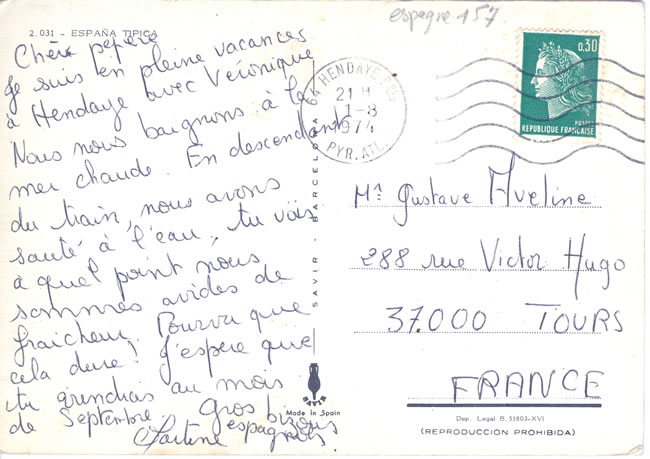 espagne 157
2.031 - ESPAÑA TIPICA
Chère pépère
Je suis en pleine vacances
à Hendaye avec Véronique
Nous nous baignons à la
mer chaude. En descendant
du train, nous avons
sauté à l'eau, tu vois
à quel point nous
sommes avides de
fraicheur. Pourvu que
cela dure! J'espère que
tu au mois
de Septembre. Gros bizous
espagnols
Martine
SAVIR - BARCELONA
Made in Spain
64 HENDAYE PPAL
21 H
1-8
1974
PYR. ATL.
0,30
POSTES
REPUBLIQUE FRANÇAISE
Mr Gustave Aveline
288 rue Victor Hugo
37.000 TOURS
FRANCE
Dep. Legal B. 51803-XVI
(REPRODUCCION PROHIBIDA)